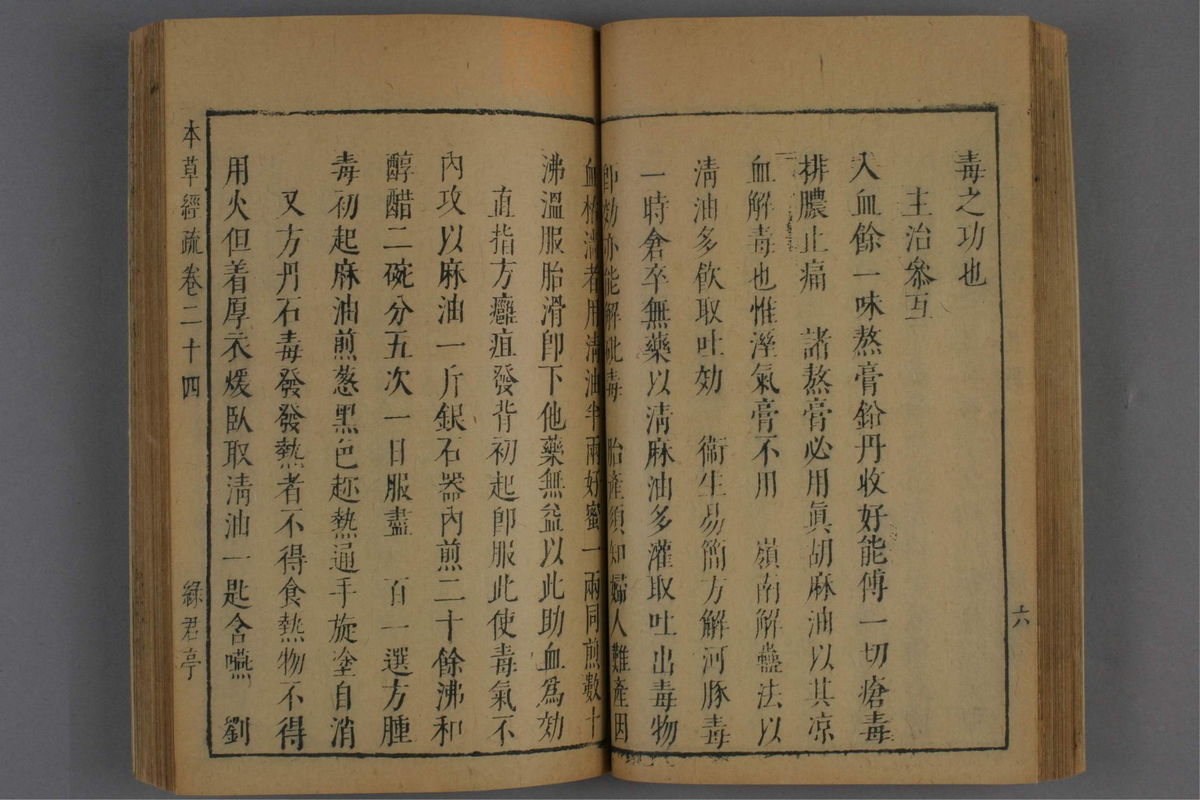 毒之功也
主治參互
入血餘一味熬膏鉛丹收好能傅一切瘡毒
排膿止痛　諸熬膏必用眞胡麻油以其凉
血解毒也惟溼氣膏不用　嶺南解蠱法以
淸油多飲取吐効　衞生易簡方解河豚毒
一時倉卒無藥以淸麻油多灌取吐出毒物
卽効亦能解砒毒　胎產須知婦人難產因
血枯澁者用淸油半兩好蜜一兩同煎數十
沸溫服胎滑卽下他藥無益以此助血爲効
直指方癰疽發背初起卽服此使毒氣不
內攻以麻油一斤銀石器內煎二十餘沸和
醇醋二碗分五次一日服盡　百一選方腫
毒初起麻油煎葱黑色趂熱通手旋塗自消
又方丹石毒發發熱者不得食熱物不得
用火但着厚衣煖臥取淸油一匙含嚥　劉
六
本草經疏卷二十四
綠君亭